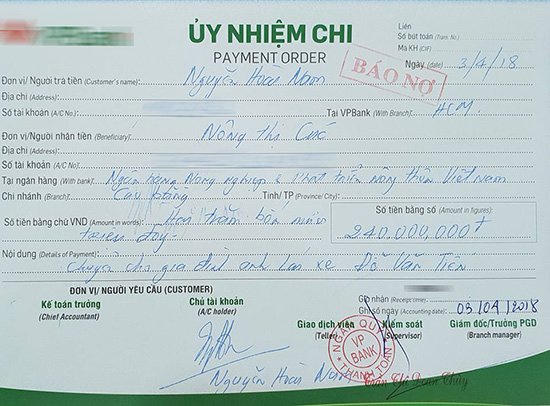 ỦY NHIỆM CHI
PAYMENT ORDER
Liên
Số bút toán (Tranx. No.)
Mã KH (CIF)
Ngày (date) 3/4/18
BÁO NỢ
Đơn vị/Người trả tiền (Customer's name): Nguyễn Hoài Nam
Địa chỉ (Address):
Số tài khoản (A/C No.) Tại VPBank (With Branch): HCM.
Đơn vị/Người nhận tiền (Beneficiary): Nông Thị Cúc
Địa chỉ (Address):
Số tài khoản: (A/C No)
Tại ngân hàng (With bank): Ngân hàng Nông nghiệp & Phát triển nông thôn Việt Nam
Chi nhánh (Branch): Cao Bằng Tỉnh/ TP (Province/ City):
Số tiền bằng chữ VND (Amount in words): Hai trăm bốn mươi
triệu đồng.
Số tiền bằng số (Amount in figures):
240,000,000đ
Nội dung (Details of Payment): Chuyển cho gia đình anh lái xe Đỗ Văn Tiến
ĐƠN VỊ/ NGƯỜI YÊU CẦU (CUSTOMER)
Kế toán trưởng
(Chief Accountant)
Chủ tài khoản
(A/C holder)
Nguyễn Hoài Nam
Ghi nhận (Receipt time)
Ghi sổ ngày (Accounting date): 03/04/2018
Giao dịch viên
(Teller)
Kiểm soát
(Supervisor)
Giám đốc/Trưởng PGD
(Branch manager)
NGÂN QUỸ
VP
BANK
THANH TOÁN